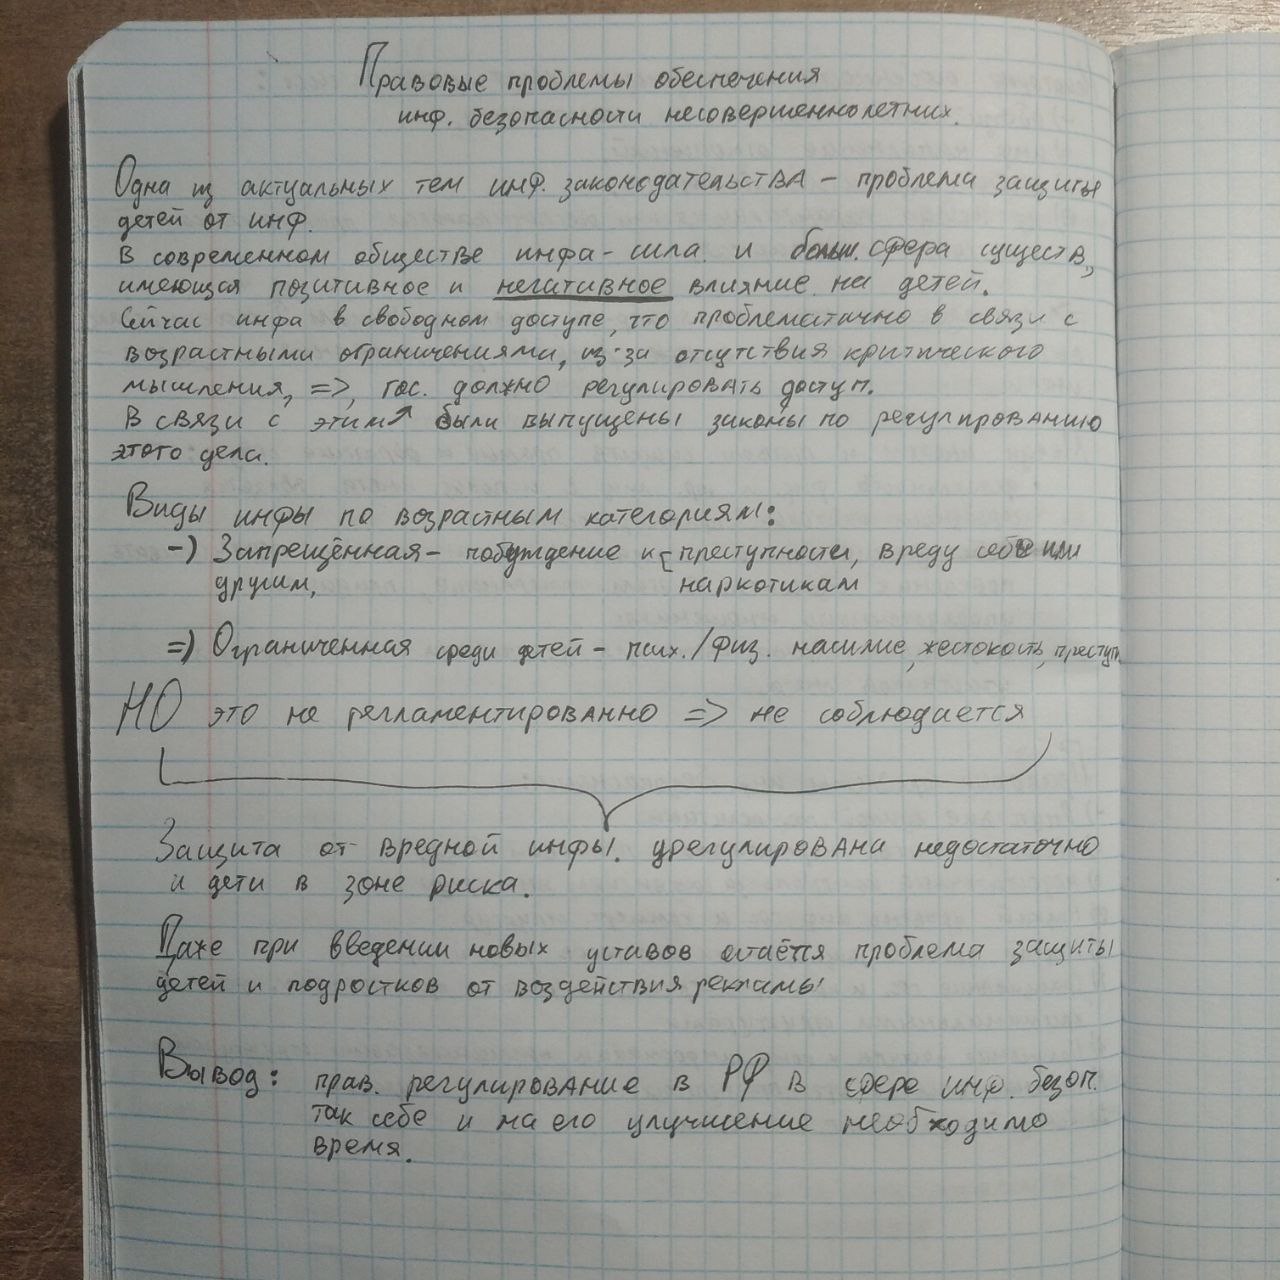 Правовые проблемы обеспечения
инф. безопасности несовершеннолетних.
Одна из актуальных тем инф. законодательства – проблема защиты
детей от инф.
В современном обществе инфа – сила и больш. сфера существ,
имеющая позитивное и негативное влияние на детей.
Сейчас инфа в свободном доступе, что проблематично в связи с
возрастными ограничениями, из-за отсутствия критического
мышления, => гос. должно регулировать доступ.
В связи с этим↗ были выпущены законы по регулированию
этого дела.
Виды инфы по возрастным категориям:
-) Запрещённая – побуждение к [преступности, вреду себе или
другим, наркотикам
=) Ограниченная среди детей – псих./физ. насилие, жестокость, преступ.
НО это не регламентированно => не соблюдается
Защита от вредной инфы. урегулирована недостаточно
и дети в зоне риска.
Даже при введении новых уставов остаётся проблема защиты
детей и подростков от воздействия рекламы
Вывод: прав. регулирование в РФ в сфере инф. безоп.
так себе и на его улучшение необходимо
время.